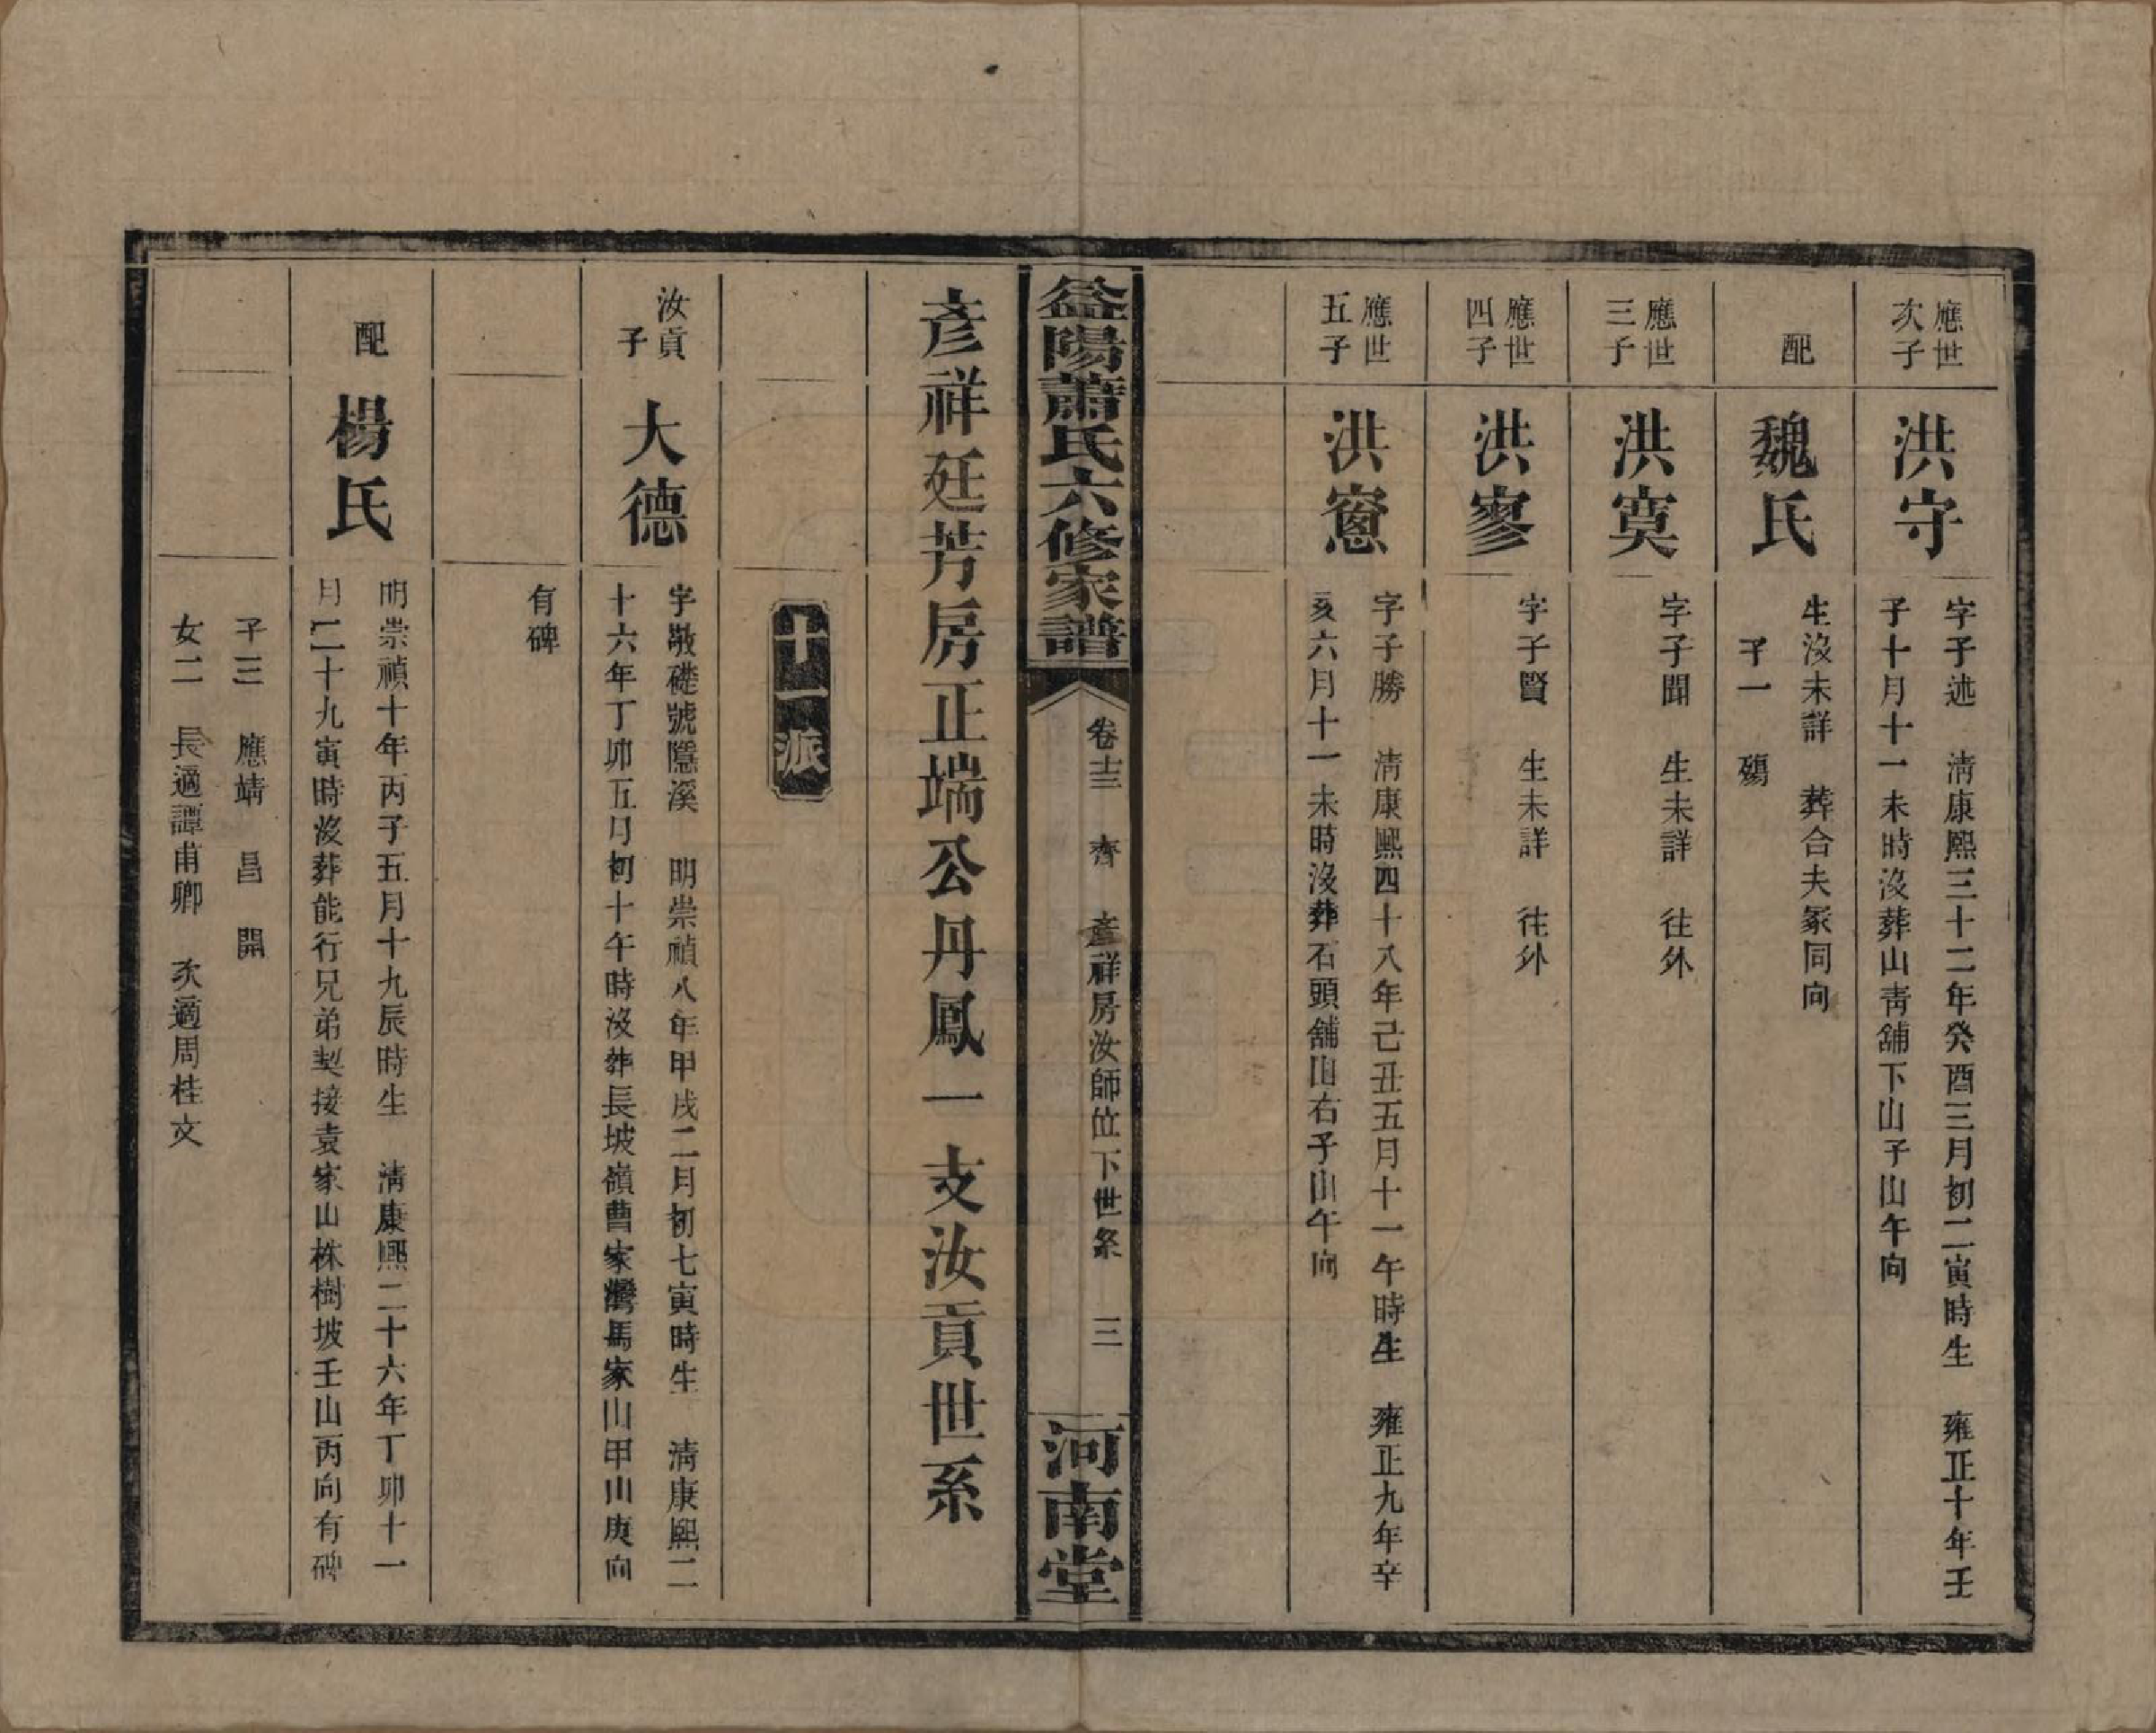 應世
次子
洪守
字子述　清康熙三十二年癸酉三月初二寅時生　雍正十年壬
子十月十一未時沒葬山靑舖下山子山午向
配
魏氏
生沒未詳　葬合夫冢同向
子一　殤
應世
三子
洪寞
字子聞　生未詳　往外
應世
四子
洪寥
字子賢　生未詳　往外
應世
五子
洪窻
字子勝　清康熙四十八年己丑五月十一午時生　雍正九年辛
亥六月十一未時沒葬石頭舖山右子山午向
益陽蕭氏六修家譜
卷十三　齊　彥祥房汝師位下世系　三
河南堂
彥祥廷芳房正端公丹鳳一支汝貢世系
十一派
汝貢
子
大德
字敬礎號隱溪　明崇禎八年甲戌二月初七寅時生　清康熙二
十六年丁卯五月初十午時沒葬長坡嶺曹家灣馬家山甲山庚向
有碑
配
楊氏
明崇禎十年丙子五月十九辰時生　清康熙二十六年丁卯十一
月二十九寅時沒葬能行兄弟契接袁家山株樹坡壬山丙向有碑
子三　應靖　昌　開
女二　長適譚甫卿　次適周桂文